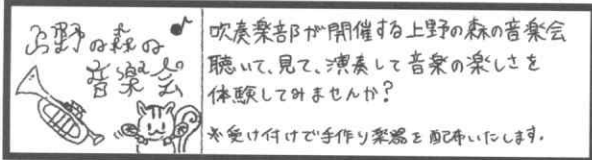 上野の森の
音楽会
吹奏楽部が開催する上野の森の音楽会
聴いて、見て、演奏して音楽の楽しさを
体験してみませんか?
※受け付けで手作り楽器を配布いたします.